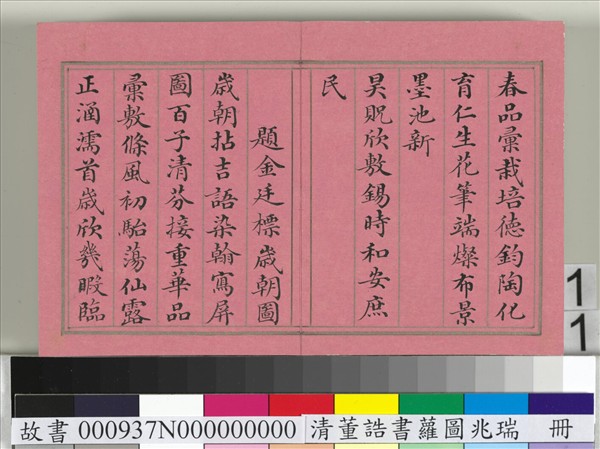 春品彙栽培德鈞陶化
育仁生花筆端燦布景
墨池新
昊貺欣敷錫時和安庶
民
題金廷標歲朝圖
歲朝拈吉語染翰寫屏
圖百子清芬接重華品
彙敷條風初駘蕩仙露
正涵濡首歲欣幾暇臨
11
故書 000937N000000000 清董誥書蘿圖兆瑞 冊